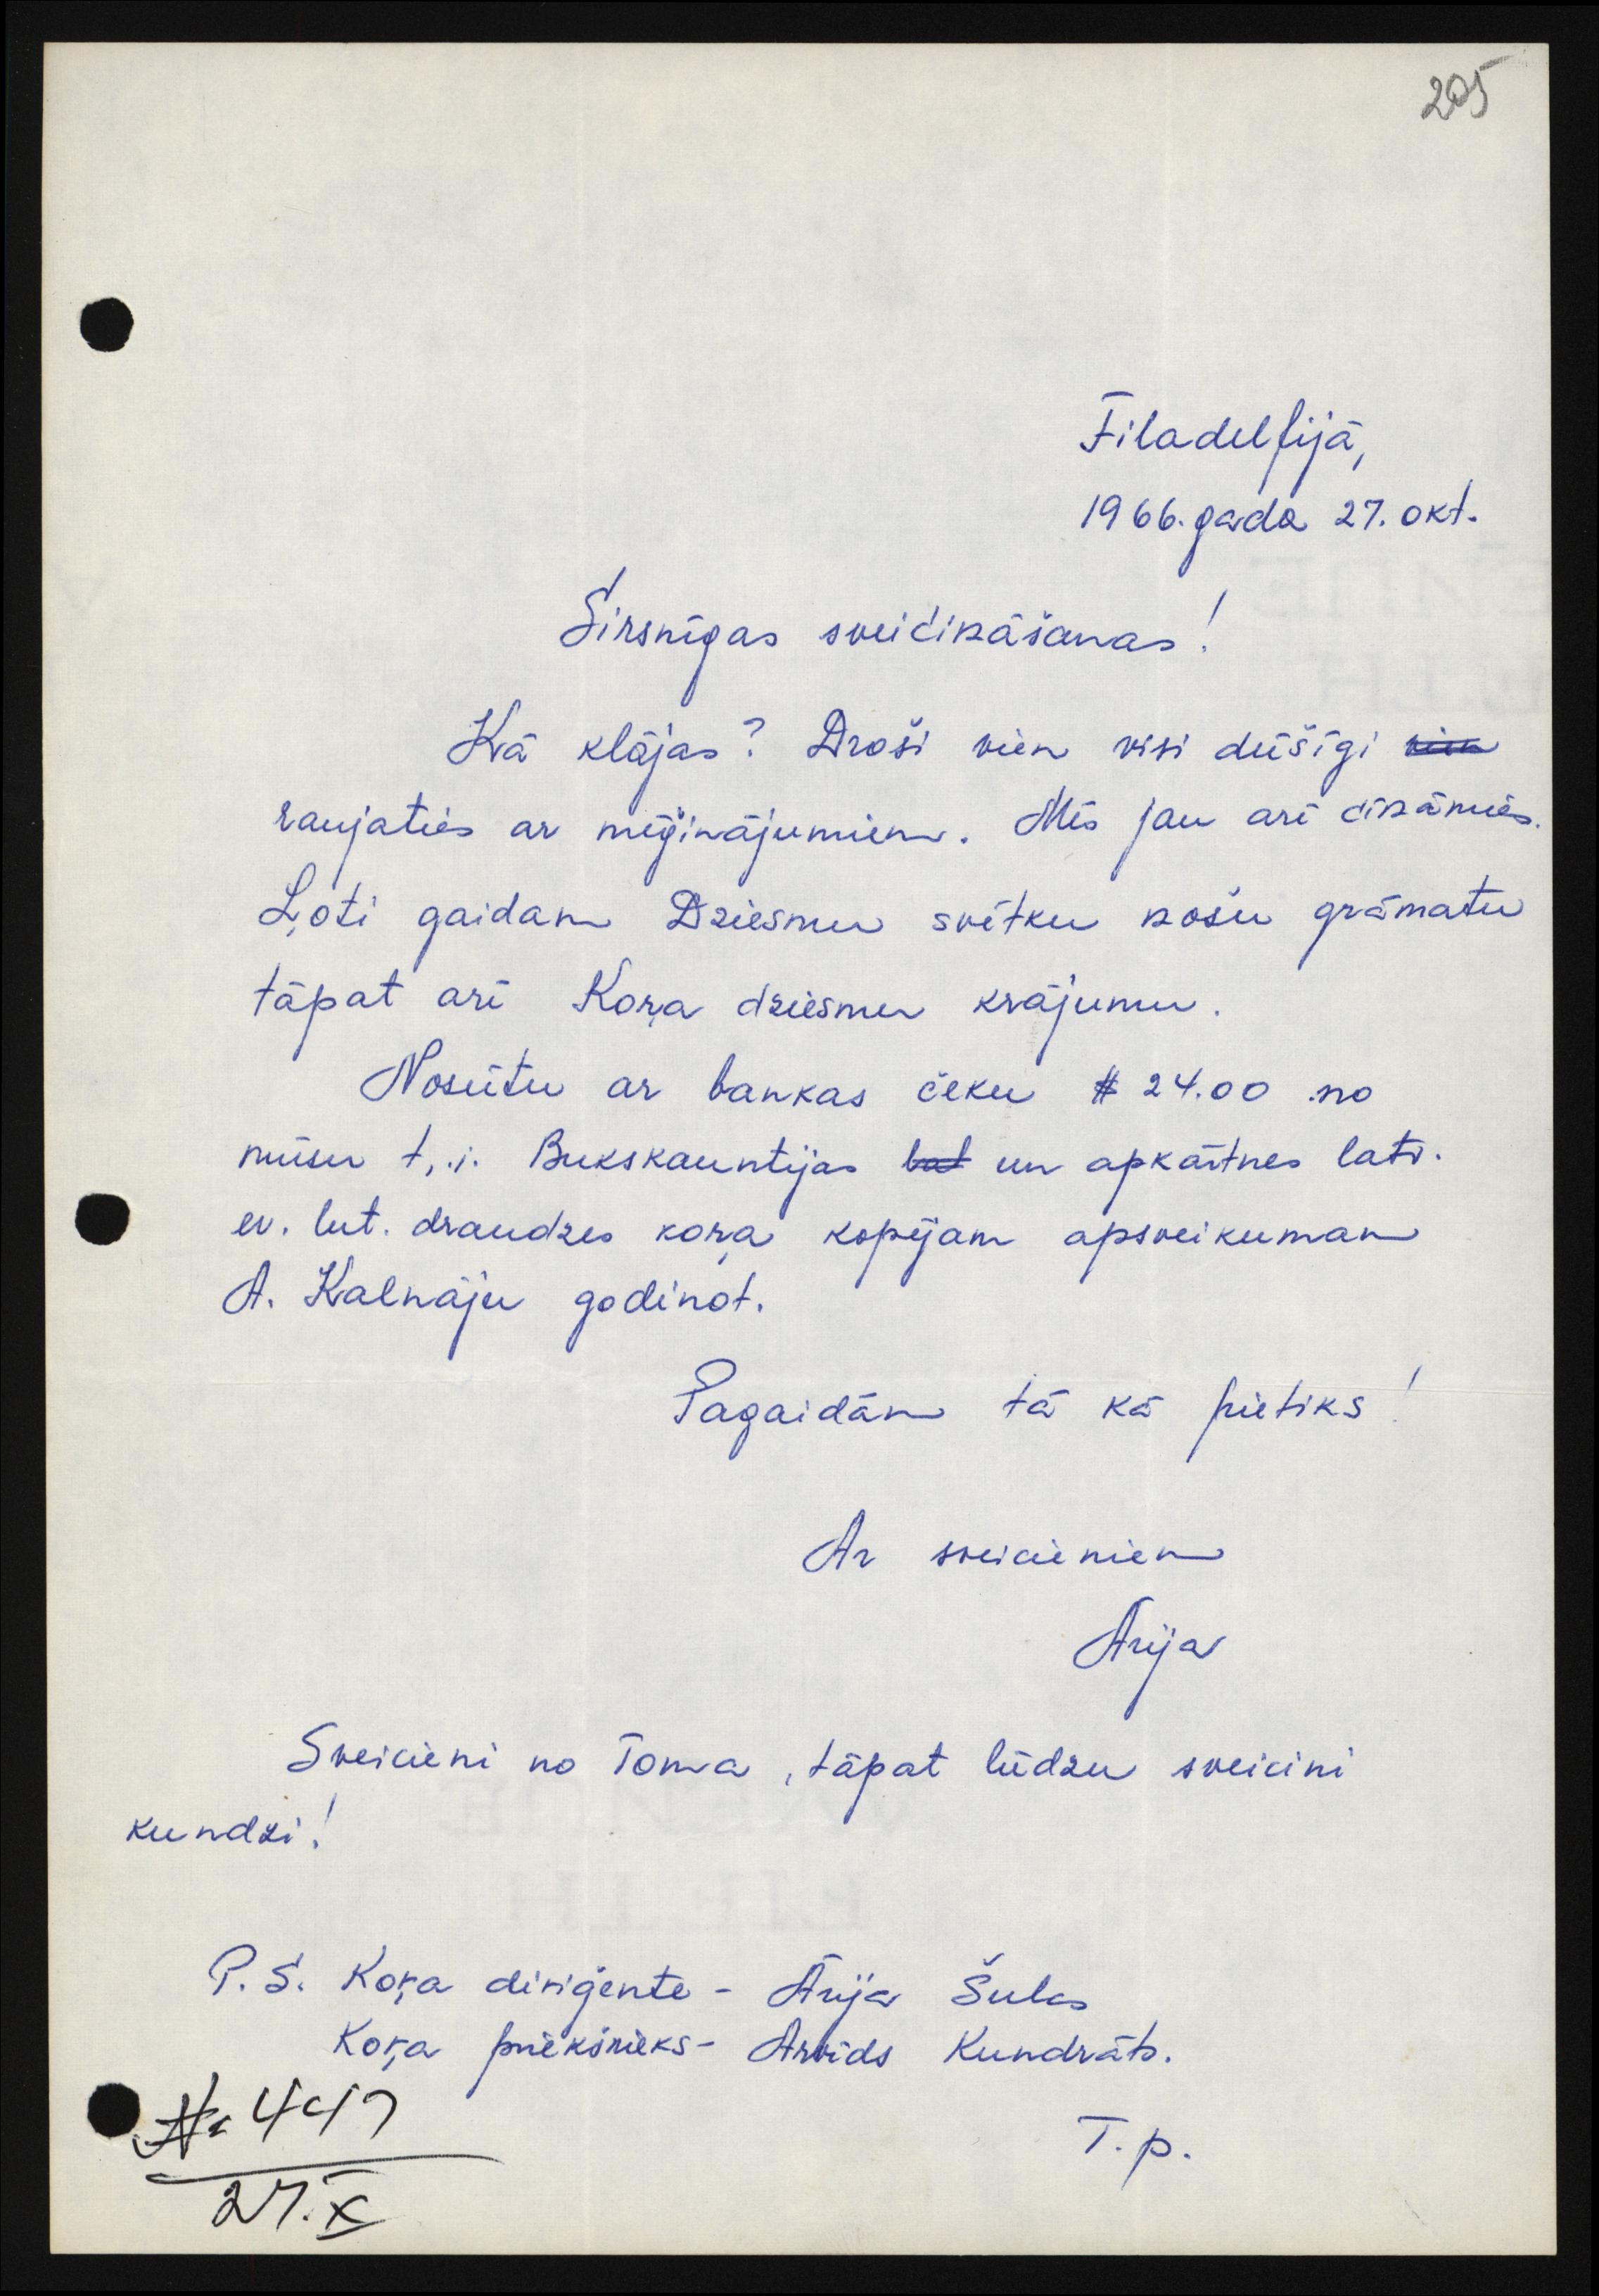 205
Filadelfijā,
1966. gada 27. okt.
Sirsnīgas sveicināšanas!
Kā klājas? Droši vien visi dūšīgi vien
raujaties ar mēģinājumiem. Mēs jau arī cīnāmies.
Ļoti gaidam Dziesmu svētku nošu grāmatu
tāpat arī Koŗa dziesmu krājumu.
Nosūtu ar bankas čeku $ 24.00 no
mūsu t. i. Bukskauntijas lat un apkārtnes latv.
ev. lut. draudzes koŗa kopējam apsveikumam
A. Kalnāju godinot.
Pagaidām tā kā pietiks!
Ar sveicieniem
Ārija
Sveicieni no Toma, tāpat lūdzu sveicini
kundzi!
P.S. Koŗa diriģente - Ārija Šulcs
Koŗa priekšnieks - Arvīds Kundrāts.
T. p.
27. X